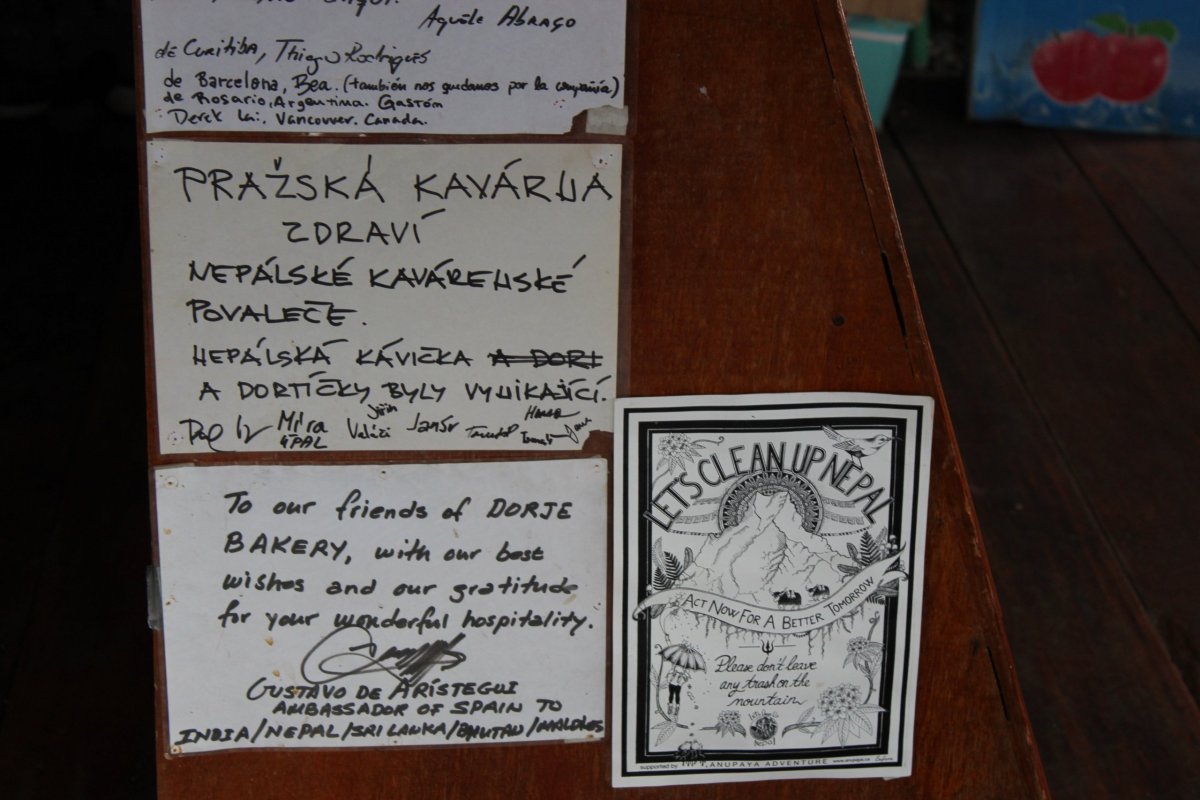 Aguäle ABRAGO
de Curitiba, Thiago Rodrigues
de Barcelona, Bea. (también nos quedamos por la compañía)
de Rosario, Argentina. Gastón
Derek Lai. Vancouver. Canada.
PRAŽSKÁ KAVÁRNA
ZDRAVÍ
NEPÁLSKÉ KAVÁRENSKÉ
POVALEČE.
NEPÁLSKÁ KÁVIČKA A DORT
A DORTÍČKY BYLY VYNIKAJÍCÍ.
Míra
4PAL
To our friends of DORJE
BAKERY, with our best
wishes and our gratitude
for your wonderful hospitality.
GUSTAVO DE ARÍSTEGUI
AMBASSADOR OF SPAIN TO
INDIA/NEPAL/SRI LANKA/BHUTAN/MALDIVES
LET'S CLEAN UP NEPAL
ACT NOW FOR A BETTER TOMORROW
Please don't leave
any trash on the
mountain
supported by ANUPAYA ADVENTURE www.anupaya.ca